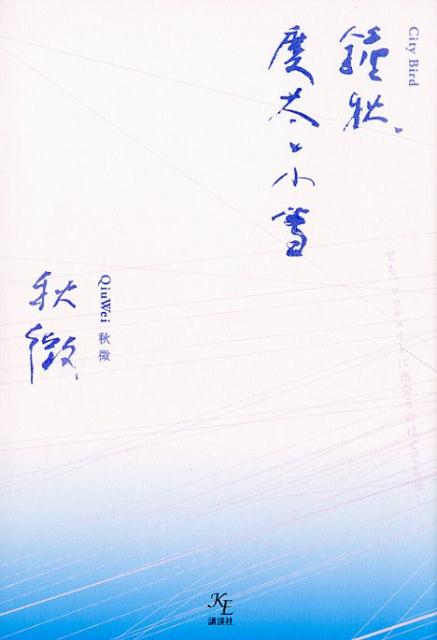 City Bird
鐘秋、
慶太と小雪
でも、ソウルメイトに出会うのはとても
QiuWei 秋微
秋微
KE
講談社